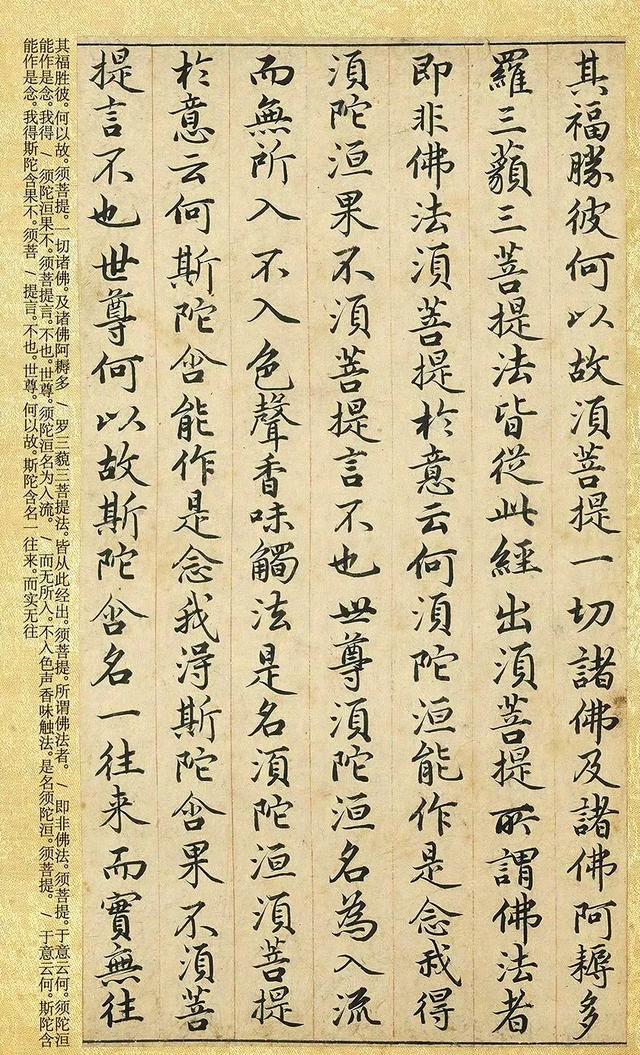 其福勝彼何以故須菩提一切諸佛及諸佛阿耨多
羅三藐三菩提法皆從此經出須菩提所謂佛法者
即非佛法須菩提於意云何須陀洹能作是念我得
須陀洹果不須菩提言不也世尊須陀洹名為入流
而無所入不入色聲香味觸法是名須陀洹須菩提
於意云何斯陀含能作是念我得斯陀含果不須菩
提言不也世尊何以故斯陀含名一往来而實無往
其福胜彼。何以故。须菩提。一切诸佛。及诸佛阿耨多 / 罗三藐三菩提法。皆从此经出。须菩提。所谓佛法者。 / 即非佛法。须菩提。于意云何。须陀洹
能作是念。我得 / 须陀洹果不。须菩提言。不也。世尊。须陀洹名为入流。 / 而无所入。不入色声香味触法。是名须陀洹。须菩提。 / 于意云何。斯陀含
能作是念。我得斯陀含果不。须菩 / 提言。不也。世尊。何以故。斯陀含名一往来。而实无往